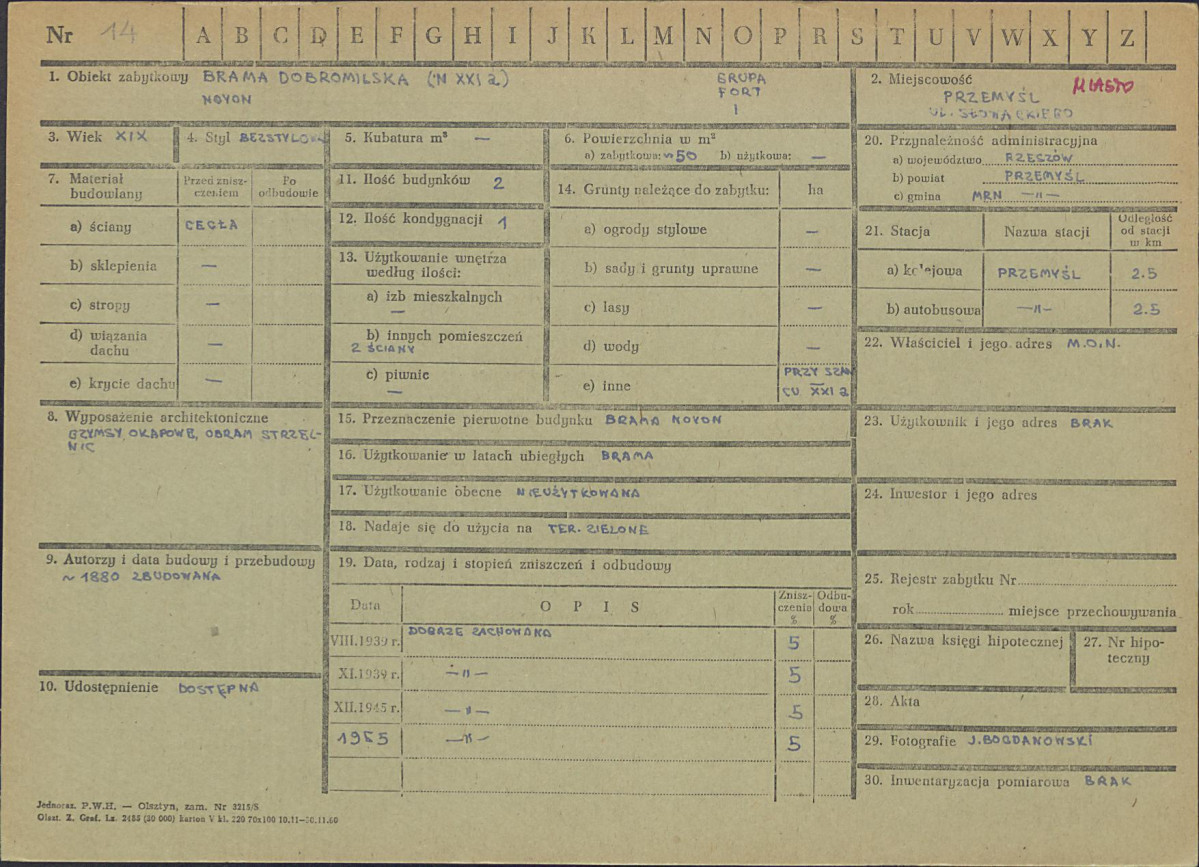 Nr 14 A B C D E F G H I J K L M N O P R S T U V W X Y Z
1. Obiekt zabytkowy BRAMA DOBROMILSKA (N XXI a)
NOYON
GRUPA
FORT
I
2. Miejscowość MIASTO
PRZEMYŚL
UL. SŁOWACKIEGO
3. Wiek XIX
4. Styl BEZSTYLOWA
5. Kubatura m³ —
6. Powierzchnia w m²
a) zabytkowa: ~50 b) użytkowa: —
20. Przynależność administracyjna
a) województwo RZESZÓW
b) powiat PRZEMYŚL
c) gmina MRN —"—
7. Materiał budowlany
Przed zniszczeniem
Po odbudowie
a) ściany CEGŁA
b) sklepienia —
c) stropy —
d) wiązania dachu —
e) krycie dachu —
11. Ilość budynków 2
12. Ilość kondygnacji 1
13. Użytkowanie wnętrza
według ilości:
a) izb mieszkalnych
—
b) innych pomieszczeń
2 ŚCIANY
c) piwnic
—
14. Grunty należące do zabytku: ha
a) ogrody stylowe —
b) sady i grunty uprawne —
c) lasy —
d) wody —
e) inne PRZY SZAŃ
CU XXI a
21. Stacja Nazwa stacji Odległość
od stacji
w km
a) kolejowa PRZEMYŚL 2.5
b) autobusowa —"— 2.5
22. Właściciel i jego adres M.O.N.
8. Wyposażenie architektoniczne
GZYMSY OKAPOWE, OBRAM STRZEL-
NIC
15. Przeznaczenie pierwotne budynku BRAMA NOYON
16. Użytkowanie w latach ubiegłych BRAMA
17. Użytkowanie obecne NIEUŻYTKOWANA
18. Nadaje się do użycia na TER. ZIELONE
23. Użytkownik i jego adres BRAK
24. Inwestor i jego adres
9. Autorzy i data budowy i przebudowy
~ 1880 ZBUDOWANA
10. Udostępnienie DOSTĘPNA
19. Data, rodzaj i stopień zniszczeń i odbudowy
Data O P I S Zniszczenia % Odbudowa %
VIII.1939 r. DOBRZE ZACHOWANA 5
XI.1939 r. —"— 5
XII.1945 r. —"— 5
1955 —"— 5
25. Rejestr zabytku Nr
rok miejsce przechowywania
26. Nazwa księgi hipotecznej
27. Nr hipo-
teczny
28. Akta
29. Fotografie J. BOGDANOWSKI
30. Inwentaryzacja pomiarowa BRAK
Jednoraz. P.W.H. — Olsztyn, zam. Nr 3215/S
Olszt. Z. Graf. Lz. 2485 (20 000) karton V kl. 220 70x100 10.11—30.11.60